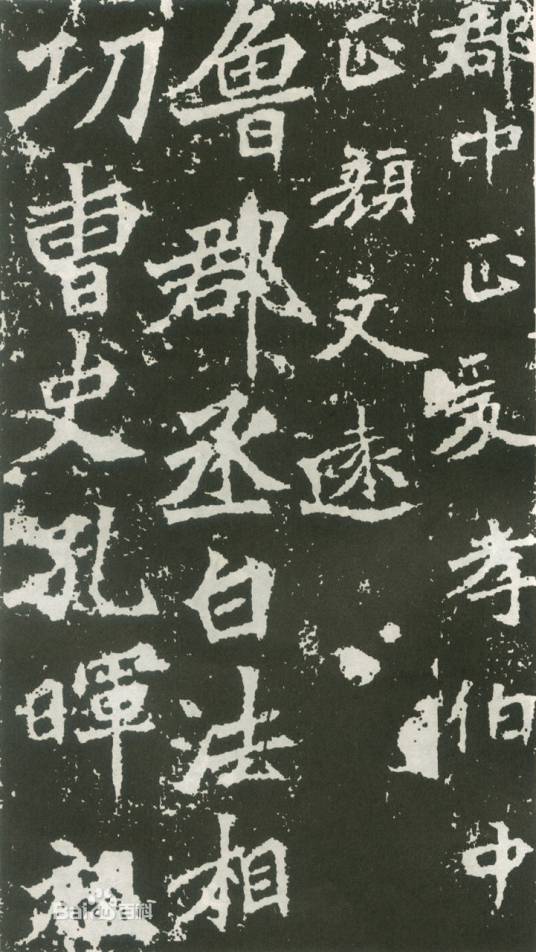 郡中正爰孝伯中
正顏文遠
魯郡丞白法相
功曹史孔暉
Baidu百科